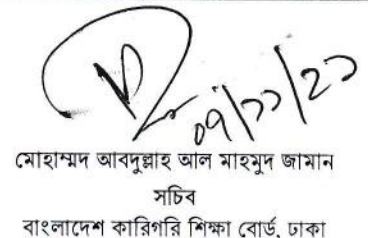 ০৭/১১/২১
মোহাম্মদ আবদুল্লাহ আল মাহমুদ জামান
সচিব
বাংলাদেশ কারিগরি শিক্ষা বোর্ড, ঢাকা